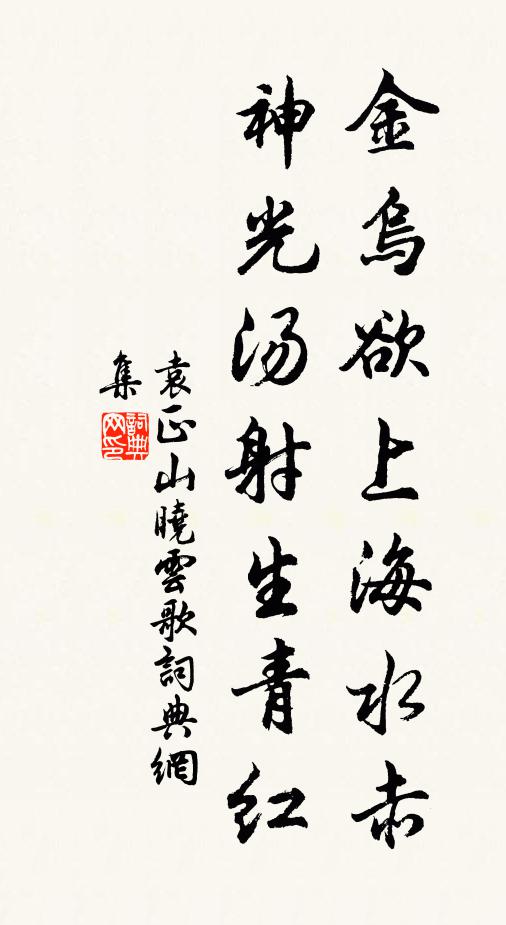 金烏欲上海水赤
神光汤射生青红
袁正山曉雲歌詞典網
集
詞典
网印